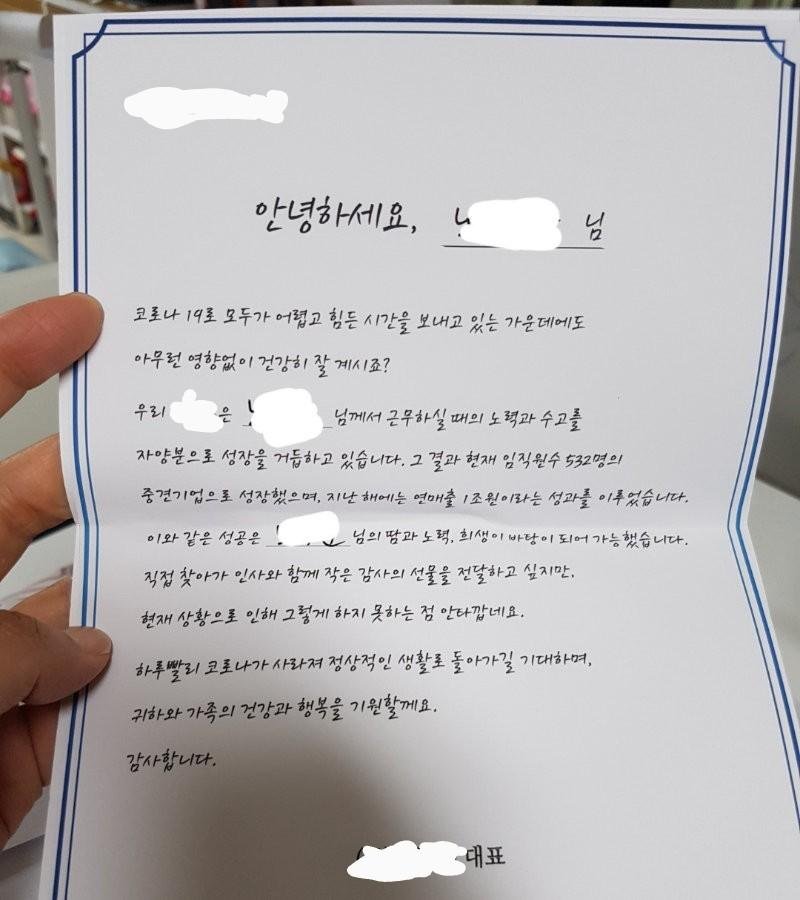 안녕하세요, 님
코로나 19로 모두가 어렵고 힘든 시간을 보내고 있는 가운데에도
아무런 영향없이 건강히 잘 계시죠?
우리 은 님께서 근무하실 때의 노력과 수고를
자양분으로 성장을 거듭하고 있습니다. 그 결과 현재 임직원수 532명의
중견기업으로 성장했으며, 지난 해에는 연매출 1조원이라는 성과를 이루었습니다.
이와 같은 성공은 님의 땀과 노력, 희생이 바탕이 되어 가능했습니다.
직접 찾아가 인사와 함께 작은 감사의 선물을 전달하고 싶지만,
현재 상황으로 인해 그렇게 하지 못하는 점 안타깝네요.
하루빨리 코로나가 사라져 정상적인 생활로 돌아가길 기대하며,
귀하와 가족의 건강과 행복을 기원할께요.
감사합니다.
대표